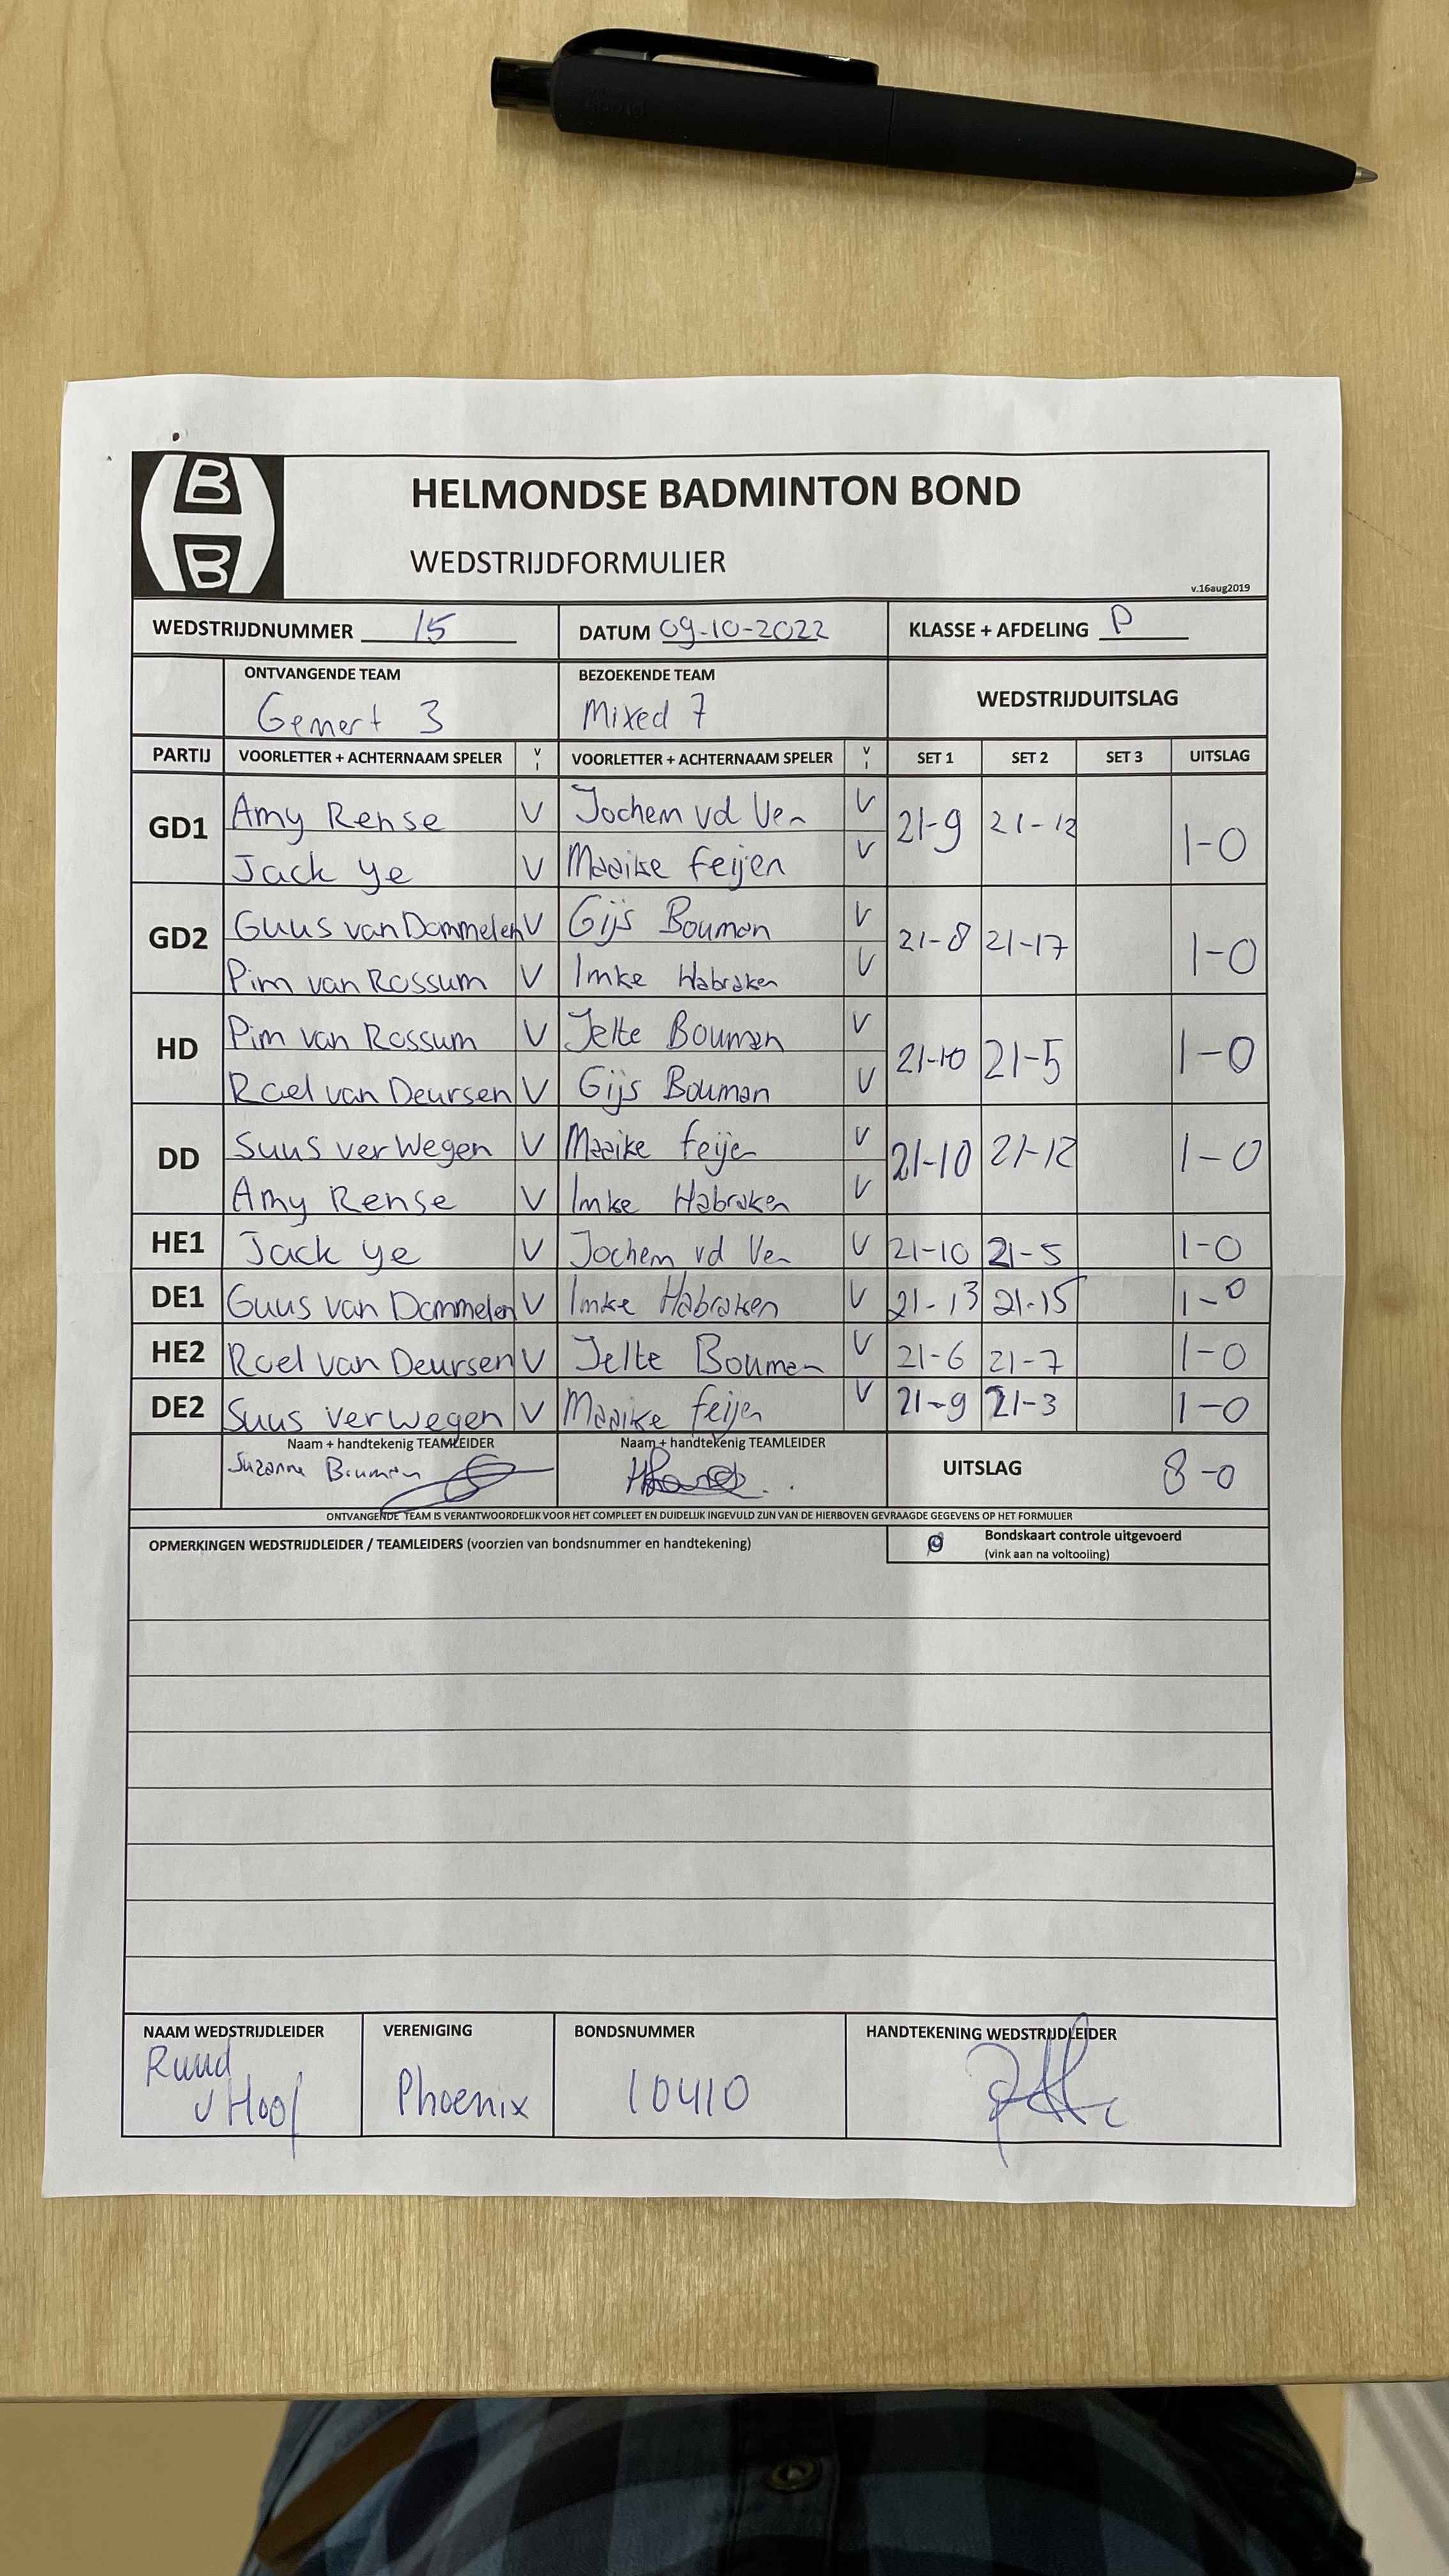 B
B
HELMONDSE BADMINTON BOND
WEDSTRIJDFORMULIER
v.16aug2019
WEDSTRIJDNUMMER 15 DATUM 09-10-2022 KLASSE + AFDELING P
ONTVANGENDE TEAM BEZOEKENDE TEAM WEDSTRIJDUITSLAG
Gemert 3 Mixed 7
PARTIJ VOORLETTER + ACHTERNAAM SPELER V I VOORLETTER + ACHTERNAAM SPELER V I SET 1 SET 2 SET 3 UITSLAG
GD1 Amy Rense V Jochem vd Ven V 21-9 21-12 1-0
Jack Ye V Maaike Feijen V
GD2 Guus van Dommelen V Gijs Bouman V 21-8 21-17 1-0
Pim van Rossum V Imke Habraken V
HD Pim van Rossum V Jelte Bouman V 21-10 21-5 1-0
Roel van Deursen V Gijs Bouman V
DD Suus verwegen V Maaike Feijen V 21-10 21-12 1-0
Amy Rense V Imke Habraken V
HE1 Jack Ye V Jochem vd Ven V 21-10 21-5 1-0
DE1 Guus van Dommelen V Imke Habraken V 21-13 21-15 1-0
HE2 Roel van Deursen V Jelte Bouman V 21-6 21-7 1-0
DE2 Suus verwegen V Maaike Feijen V 21-9 21-3 1-0
Naam + handtekenig TEAMLEIDER Naam + handtekenig TEAMLEIDER
Suzanne Bouman UITSLAG 8-0
ONTVANGENDE TEAM IS VERANTWOORDELIJK VOOR HET COMPLEET EN DUIDELIJK INGEVULD ZIJN VAN DE HIERBOVEN GEVRAAGDE GEGEVENS OP HET FORMULIER
OPMERKINGEN WEDSTRIJDLEIDER / TEAMLEIDERS (voorzien van bondsnummer en handtekening) Bondskaart controle uitgevoerd
(vink aan na voltooiing)
NAAM WEDSTRIJDLEIDER VERENIGING BONDSNUMMER HANDTEKENING WEDSTRIJDLEIDER
Ruud
v Hoof Phoenix 10410